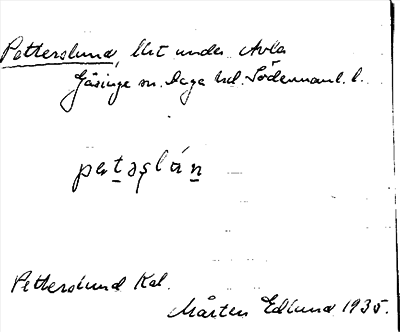 Petterslund, lht under Avla
Gåsinge sn. Daga hd. Södermanl. l.
pętəşlún
Petterslund Kal.
Mårten Edlund 1935.